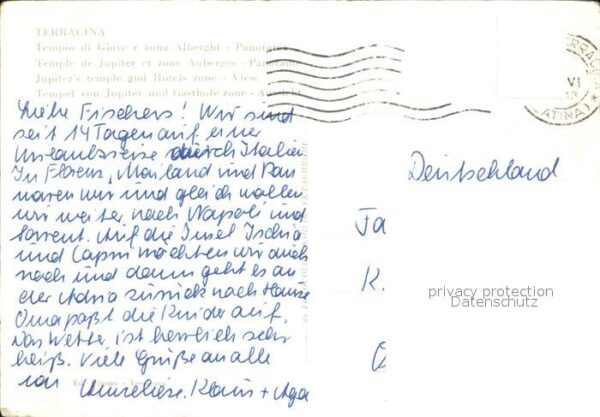 TERRACINA
Tempio di Giove e zona Alberghi - Panorama
Temple de Jupiter et zone Auberges - Panorame
Jupiter's temple gnd Hotels zone - View
Tempel von Jupiter und Gasthofe zone - Ansicht
Liebe Fischers! Wir sind
seit 14 Tagen auf einer
Urlaubsreise durch Italien
In Florenz, Mailand und
waren wir und gleich wollen
wir weiter nach Napoli und
Sorrent. Auf die Insel Ischia
und Capri möchten wir auch
noch und dann geht es an
der Adria zurück nach Hause
Oma paßt die Kinder auf.
Das Wetter ist herrlich sehr
heiß. Viele Grüße an alle
von
Anneliese, Klaus +
Deutschland
K.
privacy protection
Datenschutz
VI